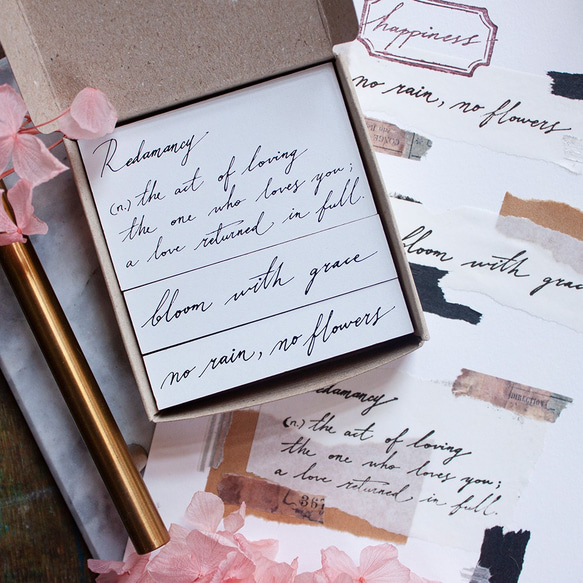 Redamancy
(n.) the act of loving
the one who loves you;
a love returned in full.
bloom with grace
no rain, no flowers
happiness
no rain, no flowers
bloom with grace
edamancy
(n.) the act of loving
the one who loves you;
a love returned in full.